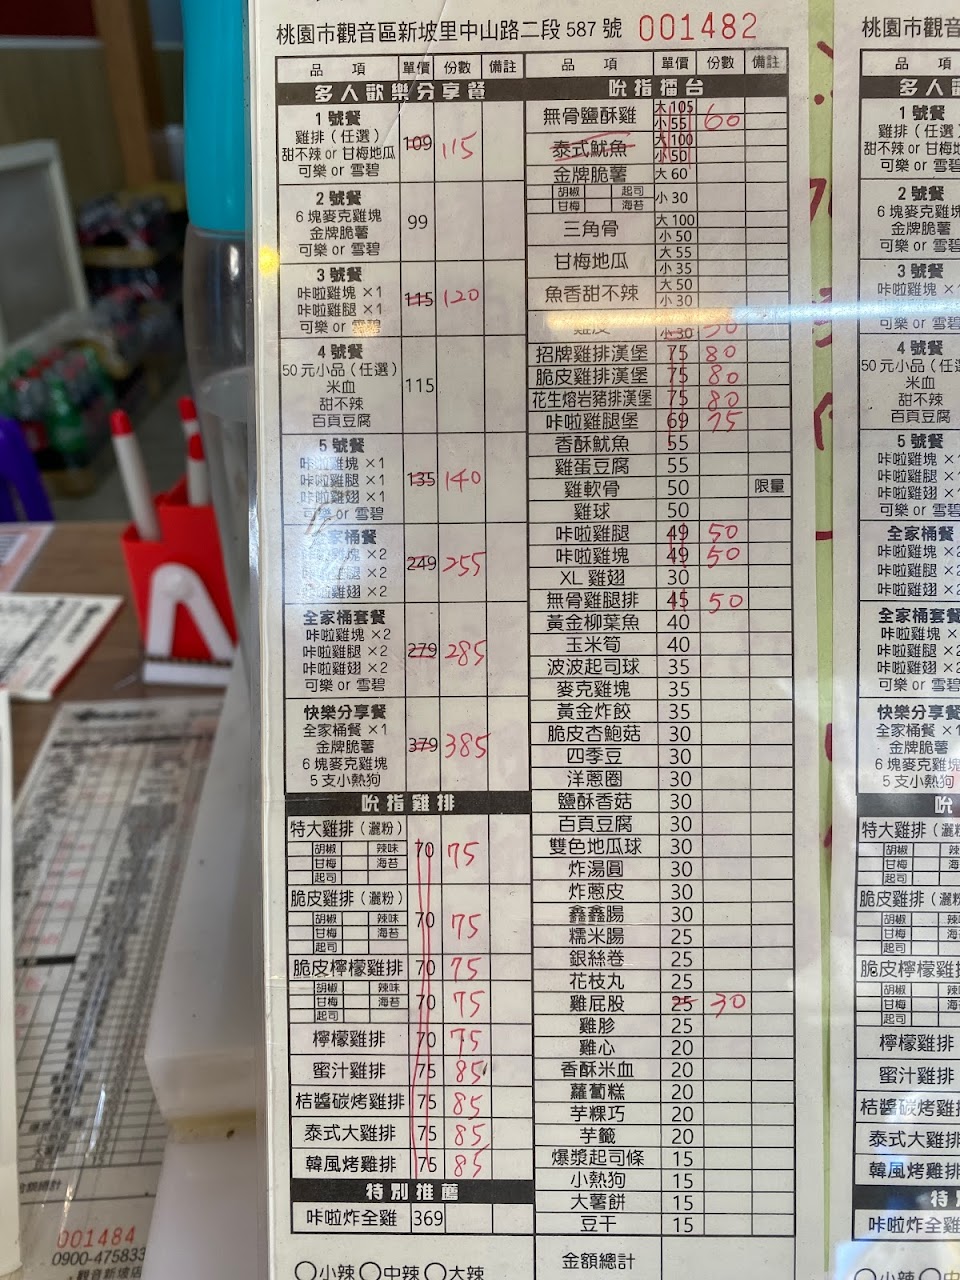 桃園市觀音區新坡里中山路二段 587 號 001482
品 項 單價 份數 備註
多人歡樂分享餐
1 號餐
雞排（任選）
甜不辣 or 甘梅地瓜
可樂 or 雪碧
109 115
2 號餐
6 塊麥克雞塊
金牌脆薯
可樂 or 雪碧
99
3 號餐
咔啦雞塊 ×1
咔啦雞腿 ×1
可樂 or 雪碧
115 120
4 號餐
50 元小品（任選）
米血
甜不辣
百頁豆腐
115
5 號餐
咔啦雞塊 ×1
咔啦雞腿 ×1
咔啦雞翅 ×1
可樂 or 雪碧
135 140
全家桶餐
咔啦雞塊 ×2
咔啦雞腿 ×2
咔啦雞翅 ×2
249 255
全家桶套餐
咔啦雞塊 ×2
咔啦雞腿 ×2
咔啦雞翅 ×2
可樂 or 雪碧
279 285
快樂分享餐
全家桶餐 ×1
金牌脆薯
6 塊麥克雞塊
5 支小熱狗
379 385
吮指雞排
特大雞排（灑粉） 70 75
胡椒 辣味
甘梅 海苔
起司
脆皮雞排（灑粉） 70 75
胡椒 辣味
甘梅 海苔
起司
脆皮檸檬雞排 70 75
胡椒 辣味
甘梅 海苔
起司
70 75
檸檬雞排 70 75
蜜汁雞排 75 85
桔醬碳烤雞排 75 85
泰式大雞排 75 85
韓風烤雞排 75 85
特別推薦
咔啦炸全雞 369
小辣 中辣 大辣
品 項 單價 份數 備註
吮指擂台
無骨鹽酥雞 大 105
小 55 60
泰式魷魚 大 100
小 50
金牌脆薯 大 60
胡椒 起司
甘梅 海苔
小 30
三角骨 大 100
小 50
甘梅地瓜 大 55
小 35
魚香甜不辣 大 50
小 30
雞皮 小 30 50
招牌雞排漢堡 75 80
脆皮雞排漢堡 75 80
花生熔岩豬排漢堡 75 80
咔啦雞腿堡 69 75
香酥魷魚 55
雞蛋豆腐 55
雞軟骨 50 限量
雞球 50
咔啦雞腿 49 50
咔啦雞塊 49 50
XL 雞翅 30
無骨雞腿排 45 50
黃金柳葉魚 40
玉米筍 40
波波起司球 35
麥克雞塊 35
黃金炸餃 35
脆皮杏鮑菇 30
四季豆 30
洋蔥圈 30
鹽酥香菇 30
百頁豆腐 30
雙色地瓜球 30
炸湯圓 30
炸蔥皮 30
鑫鑫腸 30
糯米腸 25
銀絲卷 25
花枝丸 25
雞屁股 25 30
雞胗 25
雞心 20
香酥米血 20
蘿蔔糕 20
芋粿巧 20
芋籤 20
爆漿起司條 15
小熱狗 15
大薯餅 15
豆干 15
金額總計
桃園市觀音
品 項
多人
1 號餐
雞排（任選）
甜不辣 or 甘梅地
可樂 or 雪碧
2 號餐
6 塊麥克雞塊
金牌脆薯
可樂 or 雪碧
3 號餐
咔啦雞塊 ×1
可樂 or 雪碧
4 號餐
50 元小品（任選
米血
甜不辣
百頁豆腐
5 號餐
咔啦雞塊 ×
咔啦雞腿 ×
咔啦雞翅 ×
可樂 or 雪碧
全家桶餐
咔啦雞塊 ×2
咔啦雞腿 ×2
咔啦雞翅 ×2
全家桶套餐
咔啦雞塊 ×2
咔啦雞腿 ×2
咔啦雞翅 ×2
可樂 or 雪碧
快樂分享餐
全家桶餐 ×1
金牌脆薯
6 塊麥克雞塊
5 支小熱狗
吮
特大雞排（灑
胡椒 辣
甘梅 海
起司
脆皮雞排（灑
胡椒 辣
甘梅 海
起司
脆皮檸檬雞
胡椒 辣
甘梅 海
起司
檸檬雞排
蜜汁雞排
桔醬碳烤雞
泰式大雞排
韓風烤雞排
特
咔啦炸全雞
小辣
001484
0900-475833
觀音新坡店